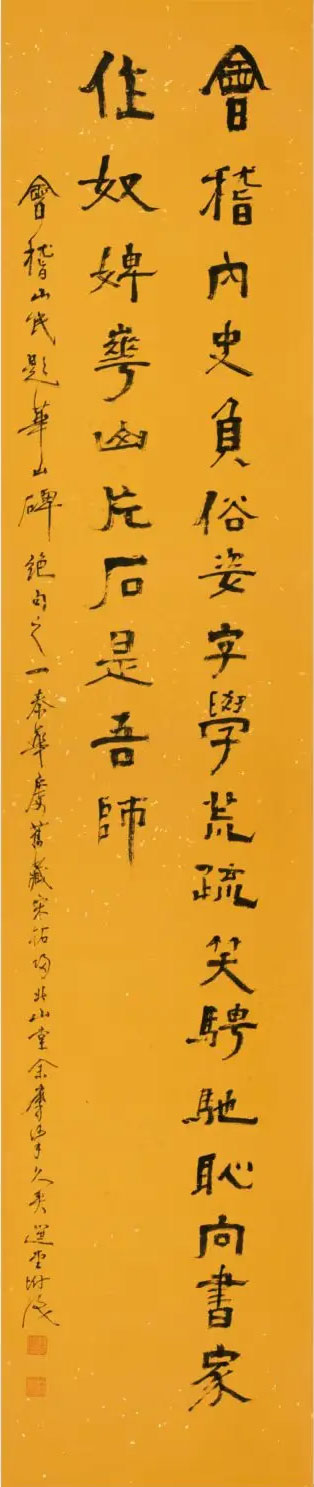 會稽內史負俗姿字學荒疏笑騁馳恥向書家
作奴婢崋山片石是吾師
會稽山民題華山碑絕句之一泰華廔舊藏宋拓歸北山堂余摩挲久矣選堂坿識